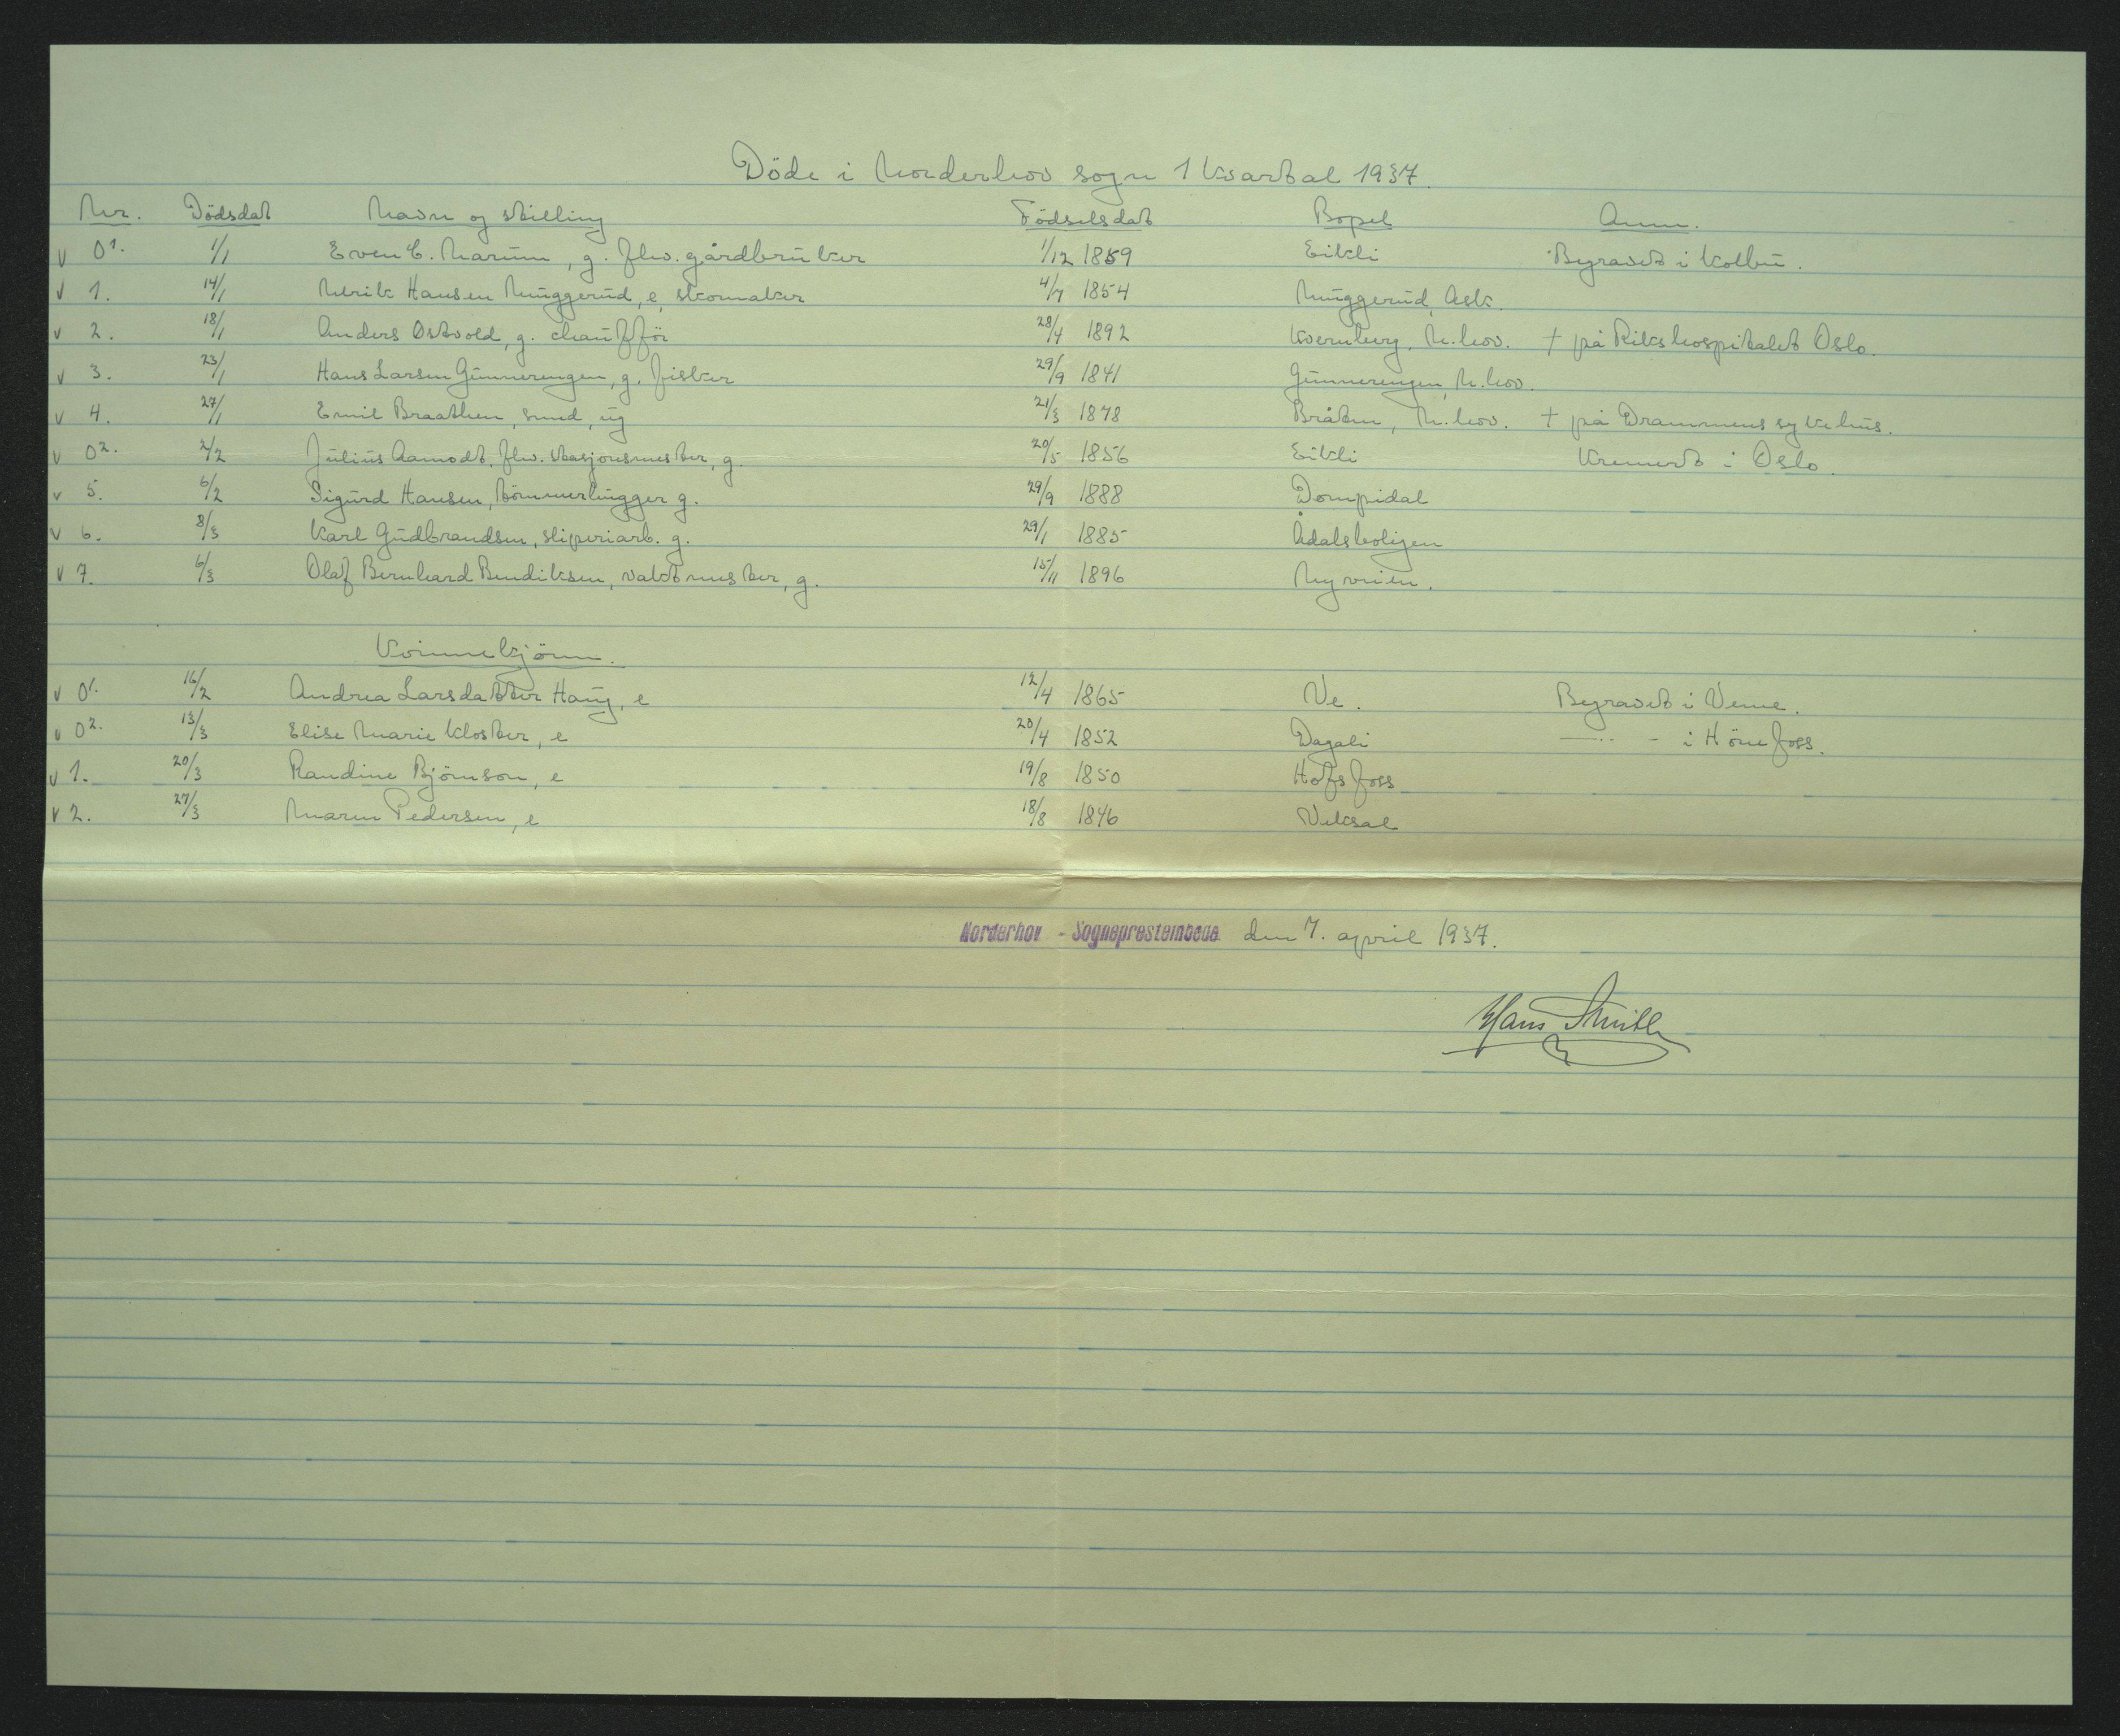 Döde i Norderhov sogn 1 kvartal 1937.
Nr. Dödsdat Navn og stilling Födselsdat Bopel Anm.
v 01. 1/1 Even C. Narum, g. fhv. gårdbruker 1/12 1859 Eikli Begravet i Kolbu.
v 1. 14/1 Ulrik Hansen Muggerud, e, skomaker 4/7 1854 Muggerud, Ask.
v 2. 18/1 Anders Ostvold, g. chaufför 28/4 1892 Kvernberg, N.hov. † på Rikshospitalet Oslo.
v 3. 23/1 Hans Larsen Gunnerengen, g. fisker 29/9 1841 Gunnerengen, N.hov.
v 4. 27/1 Emil Braathen, smed, ug 21/3 1878 Bråten, N.hov. † på Drammens sykehus.
v 02. 2/2 Julius Aamodt. fhv. stasjonsmester, g. 20/5 1856 Eikli Kremert i Oslo.
v 5. 6/2 Sigurd Hansen, tömmerhugger g. 29/9 1888 Dompidal
v 6. 8/3 Karl Gudbrandsen, sliperiarb. g. 29/1 1885 Ådalsboligen
v 7. 6/3 Olaf Bernhard Bendiksen, vaktmester, g. 15/11 1896 Nyveien.
Kvinnekjönn.
v 01. 16/2 Andrea Larsdatter Haug, e 12/4 1865 Ve. Begravet i Veme.
v 02. 13/3 Elise Marie Kloster, e 20/4 1852 Dagali —..— - i Hönefoss.
v 1. 20/3 Randine Björnson, e 19/8 1850 Hofsfoss
v 2. 27/3 Maren Pedersen, e 18/8 1846 Veksal
Norderhov - Sogneprestembede den 7. april 1937.
Hans Smith